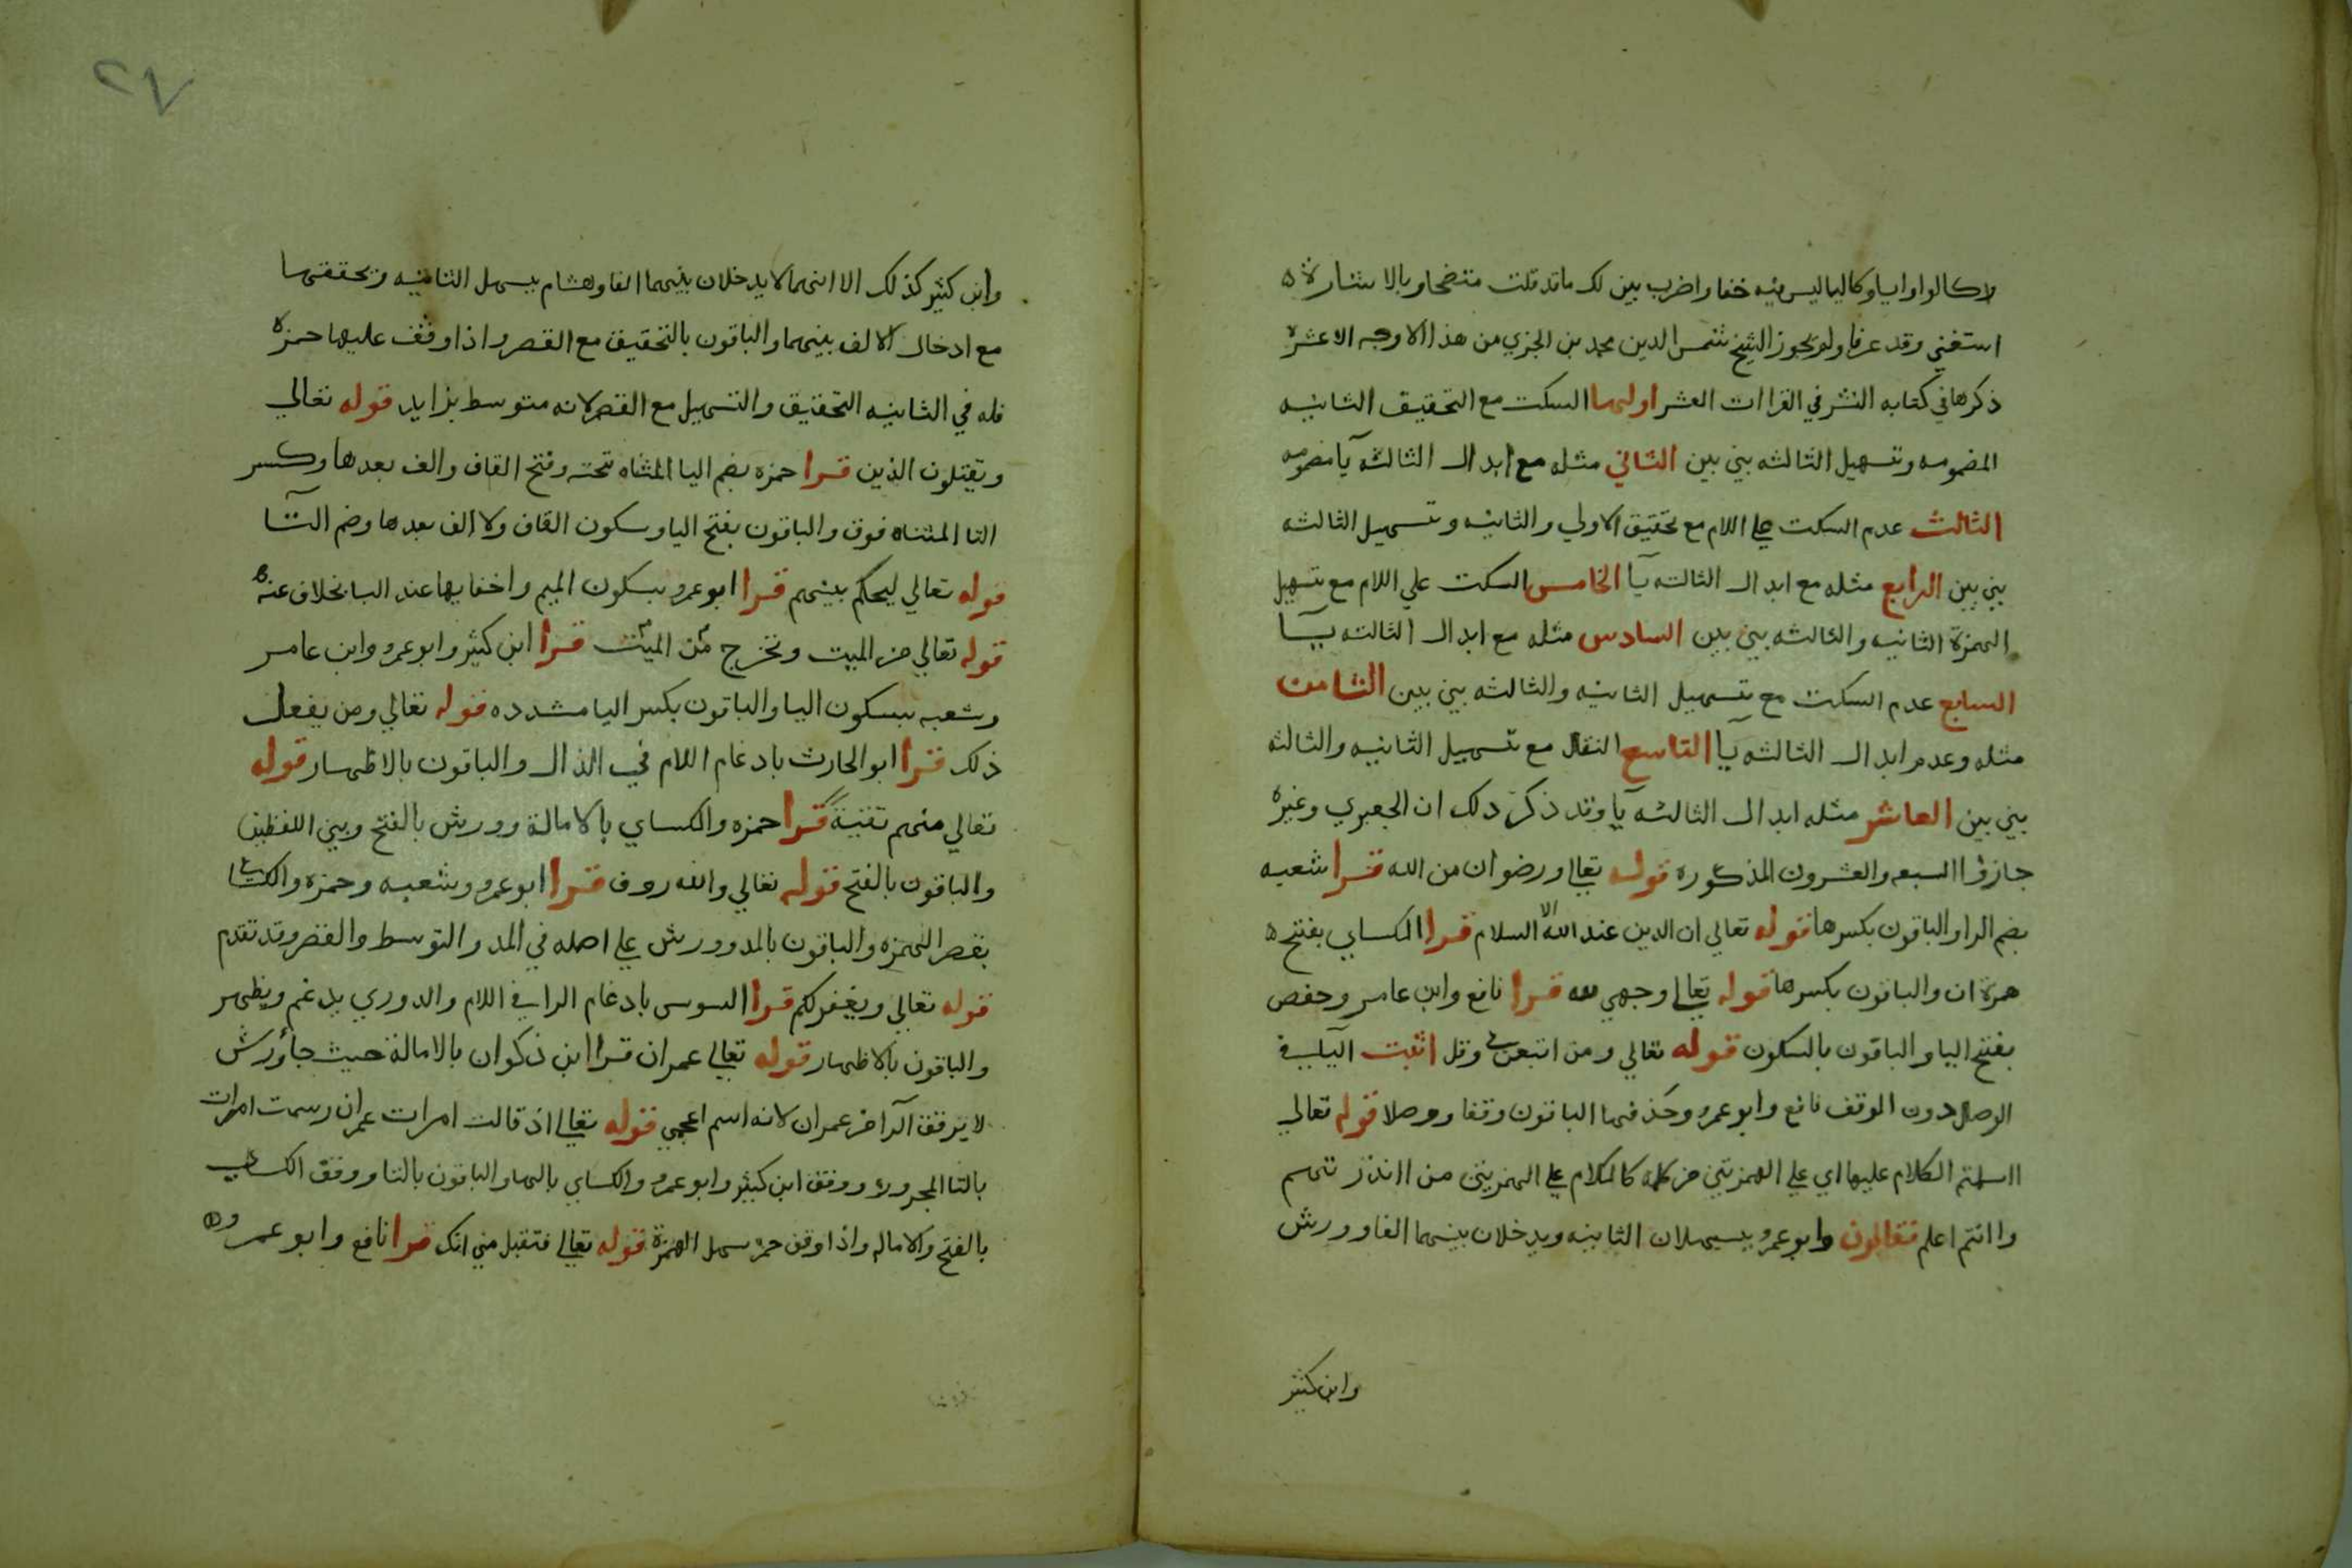 لاكالواواوياوكاليا ليس فيه خفا واضرب بين لك ما قد قلت متضحا وبالاشاره
استغني وقد عرفا ولم يجوز الشيخ شمس الدين محمد بن الجزري من هذه الاوجه الا عشره
ذكرها في كتابه النشر في القراات العشر اولها السكت مع التحقيق الثانيه
المضمومه وتسهيل الثالثه بين بين الثاني مثله مع ابدال الثالثه يا مضمومه
الثالث عدم السكت علي اللام مع تحقيق الاولي والثانيه وتسهيل الثالثه
بين بين الرابع مثله مع ابدال الثالثه يا الخامس السكت علي اللام مع تسهيل
الهمزة الثانيه والثالثه بين بين السادس مثله مع ابدال الثالثه يا
السابع عدم السكت مع تسهيل الثانيه والثالثه بين بين الثامن
مثله وعدم ابدال الثالثه يا التاسع النقل مع تسهيل الثانيه والثالثه
بين بين العاشر مثله ابدال الثالثه يا وقد ذكر ذلك ان الجعبري وغيره
جازوا السبعه والعشرون المذكوره قوله تعالي ورضوان من الله قرا شعبه
بضم الرا والباقون بكسرها قوله تعالي ان الدين عند الله الاسلام قرا الكساي بفتح
همزة ان والباقون بكسرها قوله تعالي وجهي لله قرا نافع وابن عامر وحفص
بفتح اليا والباقون بالسكون قوله تعالي ومن اتبعن وقل اثبت اليا في
الوصل دون الوقف نافع وابو عمرو وحذفها الباقون وقفا ووصلا قوله تعالي
ااسلمتم الكلام عليها اي علي الهمزتين من كلمه كالكلام علي الهمزتين من اانذرتهم
واانتم اعلم فقالون وابو عمرو يسهلان الثانيه ويدخلان بينهما الفا وورش
وابن كثير
٢٧
وابن كثير كذلك الا انهما لا يدخلان بينهما الفا وهشام يسهل الثانيه وتحققها
مع ادخال الالف بينهما والباقون بالتحقيق مع القصر واذا وقف عليها حمزه
فله في الثانيه التحقيق والتسهيل مع القصر لانه متوسط بزايد قوله تعالي
ويقتلون الذين قرا حمزه بضم اليا المثناه تحته وفتح القاف والف بعدها وكسر
التا المثناه فوق والباقون بفتح اليا وسكون القاف ولا الف بعدها وضم التا
قوله تعالي ليحكم بينهم قرا ابو عمرو بسكون الميم واخفايها عند البا بخلاف عنه
قوله تعالي من الميت وتخرج من الميت قرا ابن كثير وابو عمرو وابن عامر
وشعبه بسكون اليا والباقون بكسر اليا مشدده قوله تعالي ومن يفعل
ذلك قرا ابو الحارث بادغام اللام في الذال والباقون بالاظهار قوله
تعالي منهم تقية قرا حمزه والكساي بالامالة وورش بالفتح وبين اللفظين
والباقون بالفتح قوله تعالي والله روف قرا ابو عمرو وشعبه وحمزه والكساي
بقصر الهمزه والباقون بالمد وورش علي اصله في المد والتوسط والقصر وقد تقدم
قوله تعالي ويغفر لكم قرا السوسي بادغام الرا في اللام والدوري يدغم ويظهر
والباقون بالاظهار قوله تعالي عمران قرا ابن ذكوان بالامالة حيث جا وورش
لا يرقق الرا من عمران لانه اسم اعجمي قوله تعالي اذ قالت امرات عمران رسمت امرات
بالتا المجروره ووقف ابن كثير وابو عمرو والكساي بالها والباقون بالتا ووقف الكساي
بالفتح والاماله واذا وقف حمزه سهل الهمزة قوله تعالي فتقبل مني انك قرا نافع وابو عمرو